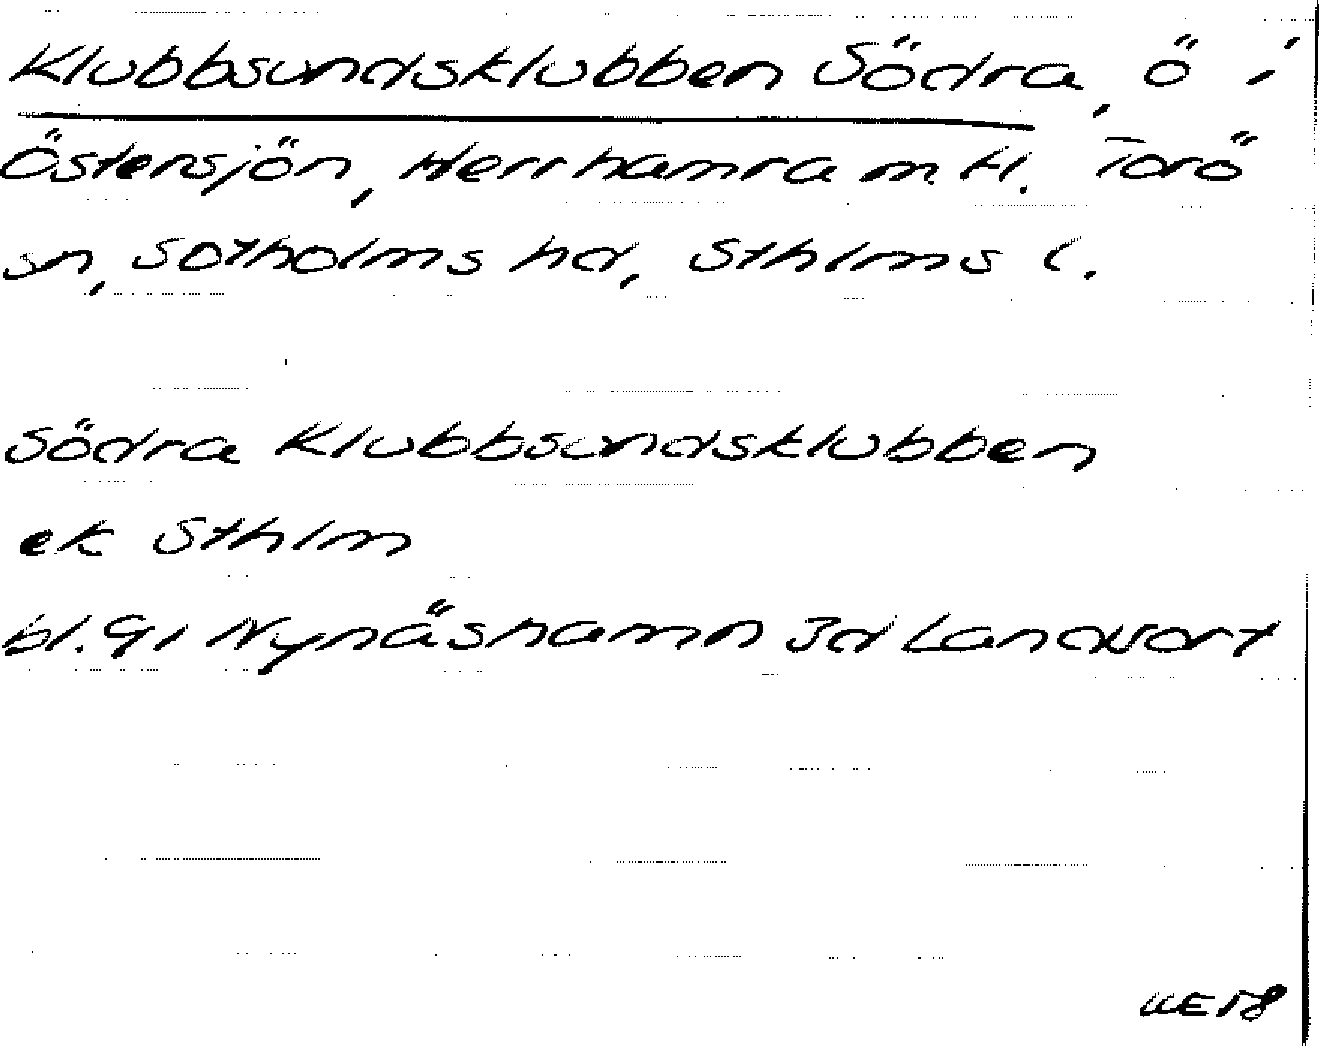 Klubbsundsklubben Södra, ö i
Östersjön, Herrhamra m. fl. Torö
sn, Sotholms hd, Sthlms l.
Södra Klubbsundsklubben
ek Sthlm
bl. 9I Nynäshamn 3d Landsort